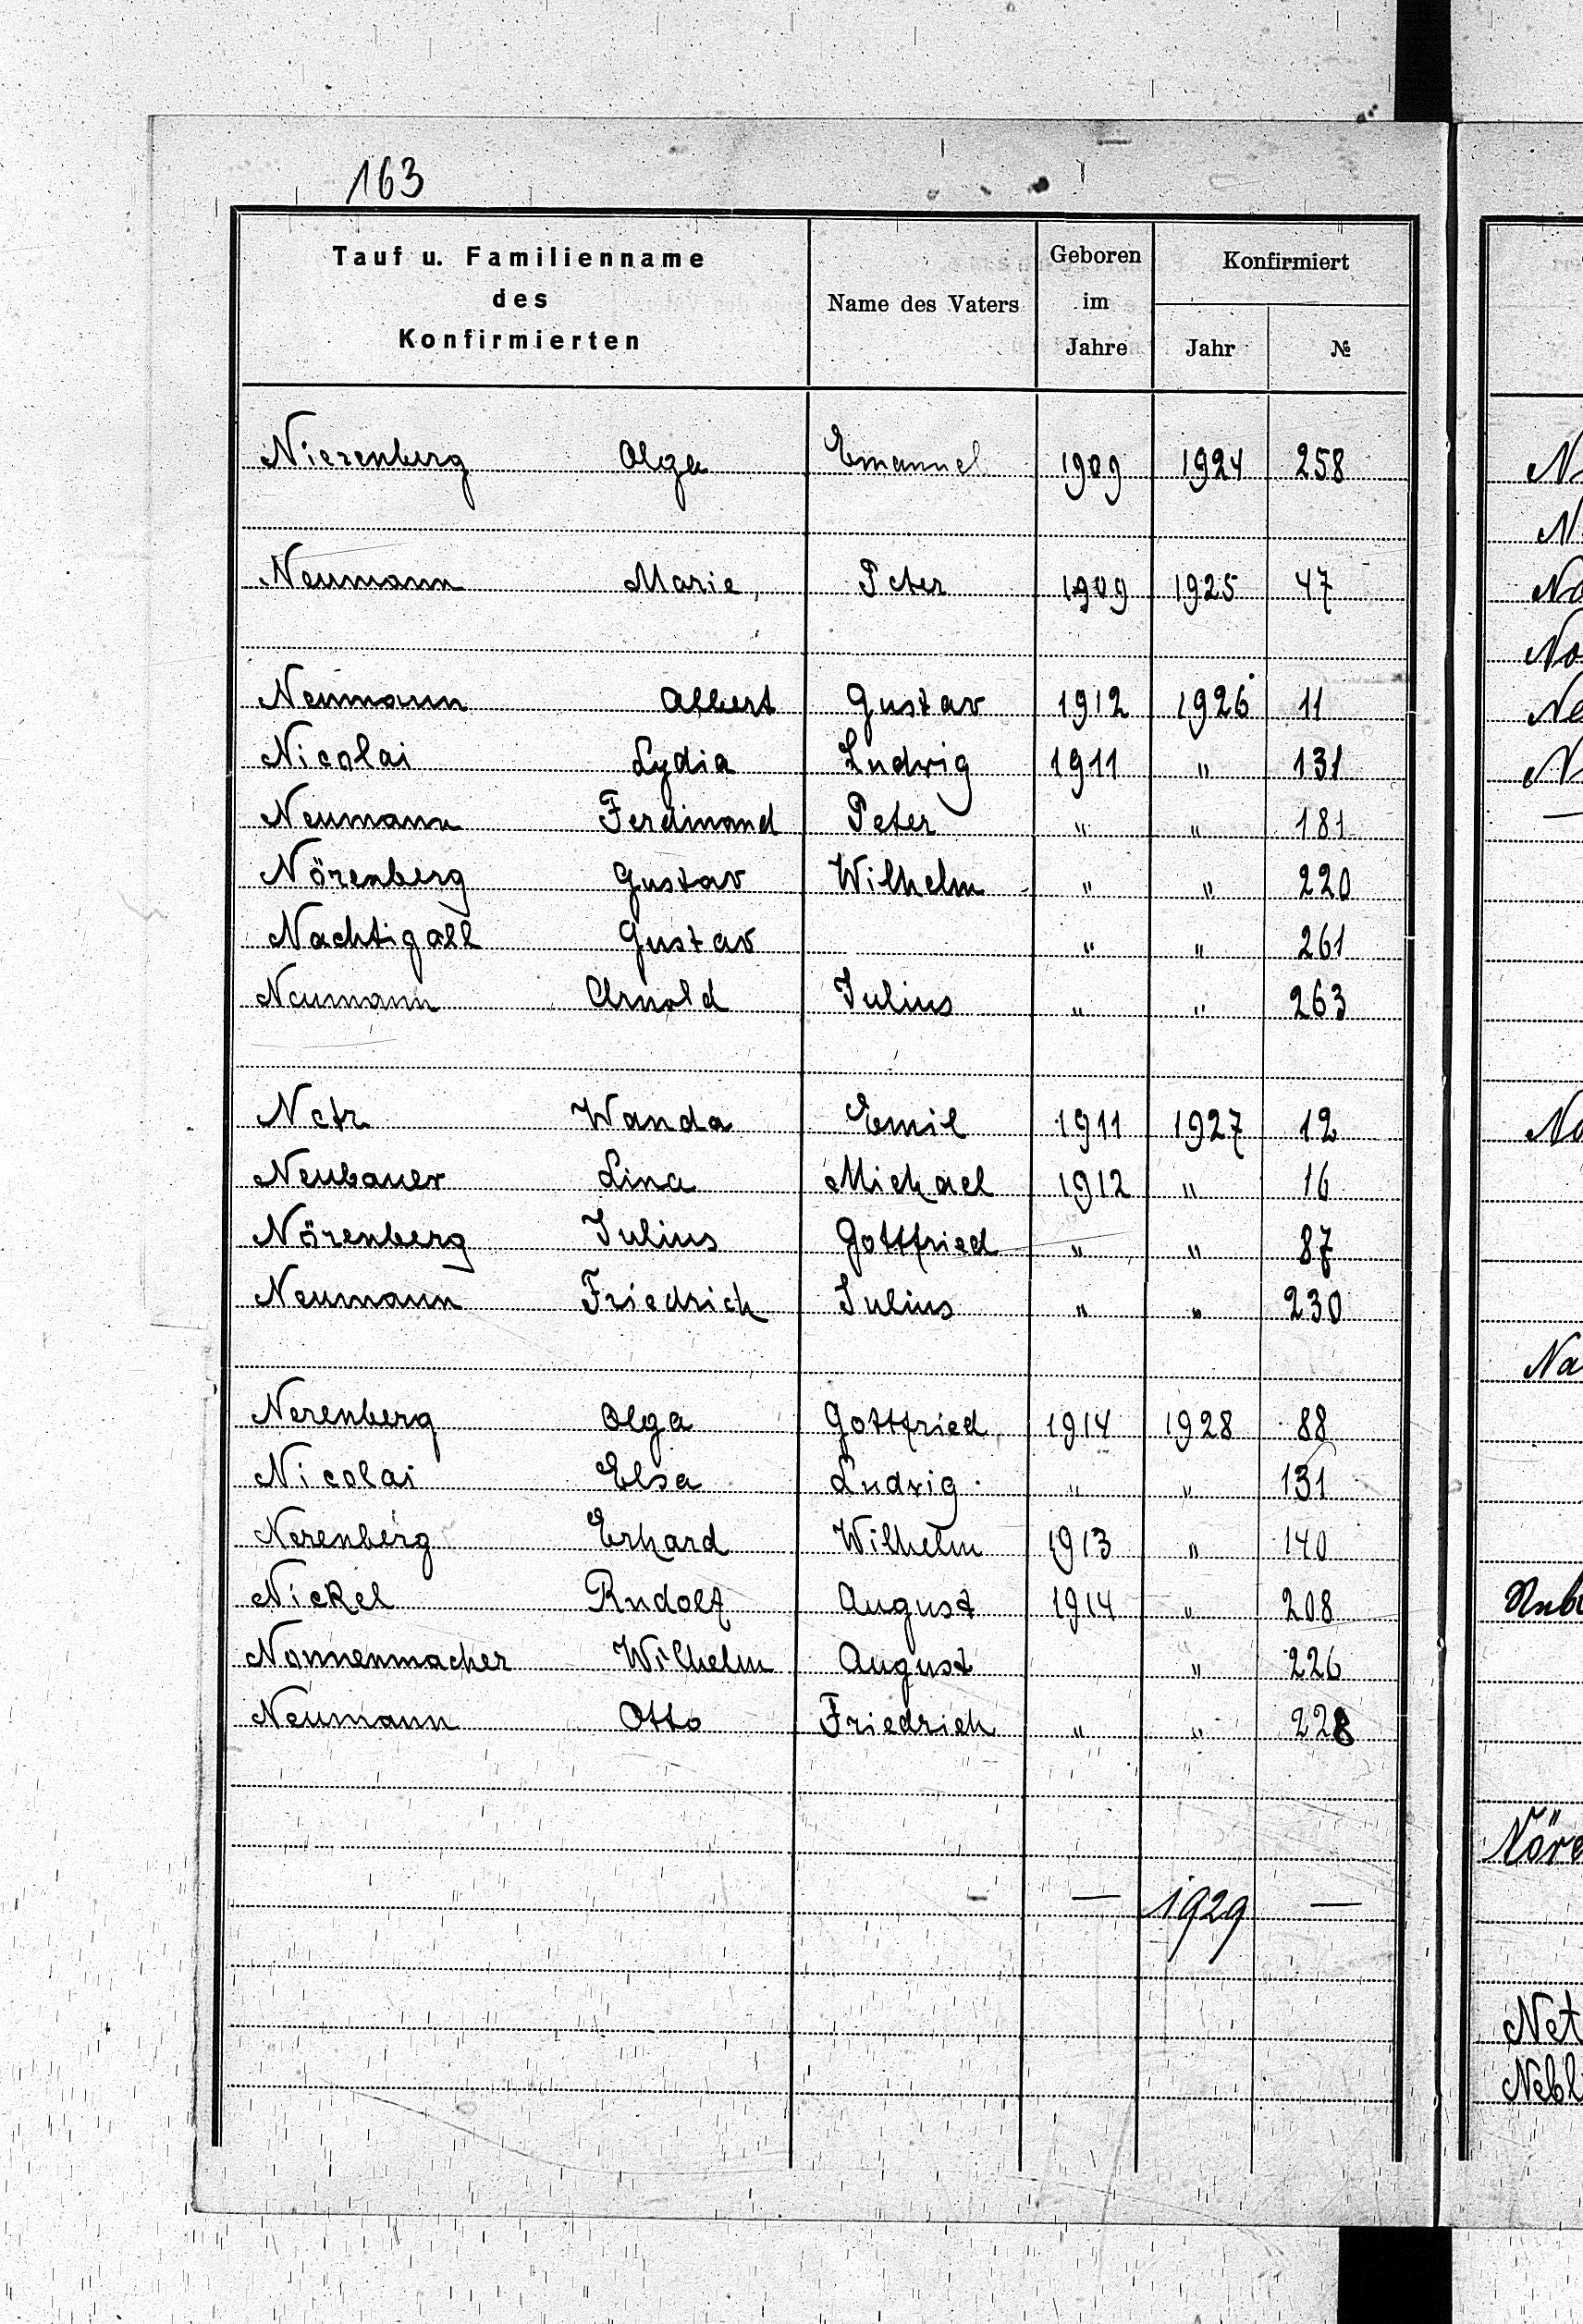 163
Tauf u. Familienname des Konfirmierten Name des Vaters Geboren im Jahre Konfirmiert Jahr №
Nierenberg Olga Emanuel 1909 1924 258
Neumann Marie, Peter 1909 1925 47
Neumann Albert Gustav 1912 1926 11
Nicolai Lydia Ludwig 1911 " 131
Neumann Ferdinand Peter " " 181
Nörenberg Gustav Wilhelm " " 220
Nachtigall Gustav " " 261
Neumann Arnold Julius " " 263
Netz Wanda Emil 1911 1927 12
Neubauer Lina Michael 1912 " 16
Nörenberg Julius Gottfried " " 87
Neumann Friedrich Julius " " 230
Nerenberg Olga Gottfried 1914 1928 88
Nicolai Elsa Ludwig " " 131
Nerenberg Erhard Wilhelm 1913 " 140
Nickel Rudolf August 1914 " 208
Nonnenmacher Wilhelm August " 226
Neumann Otto Friedrich " " 228
— 1929 —